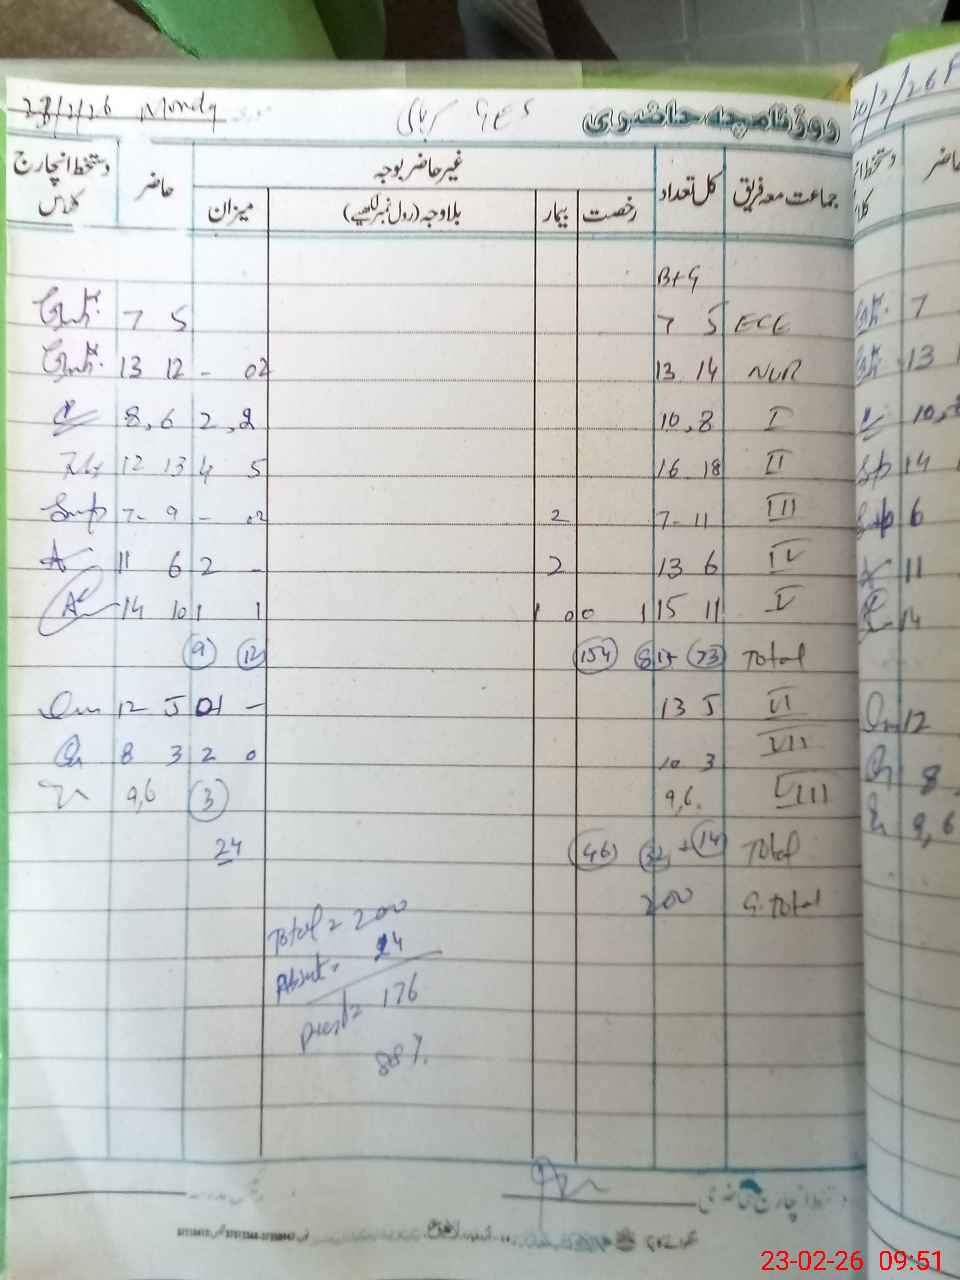 23/2/26 Mondy GES روزنامچہ حاضری
جماعت معہ فریق کل تعداد غیر حاضر بوجہ حاضر دستخط انچارج کلاس
رخصت بیمار بلاوجہ (رول نمبر لکھیے) میزان
B+G
7 5 7 5 ECE
13 12 - 02 13 14 NUR
8, 6 2, 2 10, 8 I
12 13 4 5 16 18 II
7- 9 - 02 2 7- 11 III
11 6 2 - 2 13 6 IV
14 10 1 1 1 0 0 1 15 11 V
9 12 154 81+ 73 Total
12 5 01 - 13 5 VI
8 3 2 0 10 3 VII
9,6 3 9,6. VIII
24 46 32 + 14 Total
200 G.Total
Total = 200
Absent = 24
Present = 176
88%
دستخط انچارج
23-02-26 09:51
20/2/26 F
حاضر
7
13
10, 8
14
6
11
14
12
8
9, 6